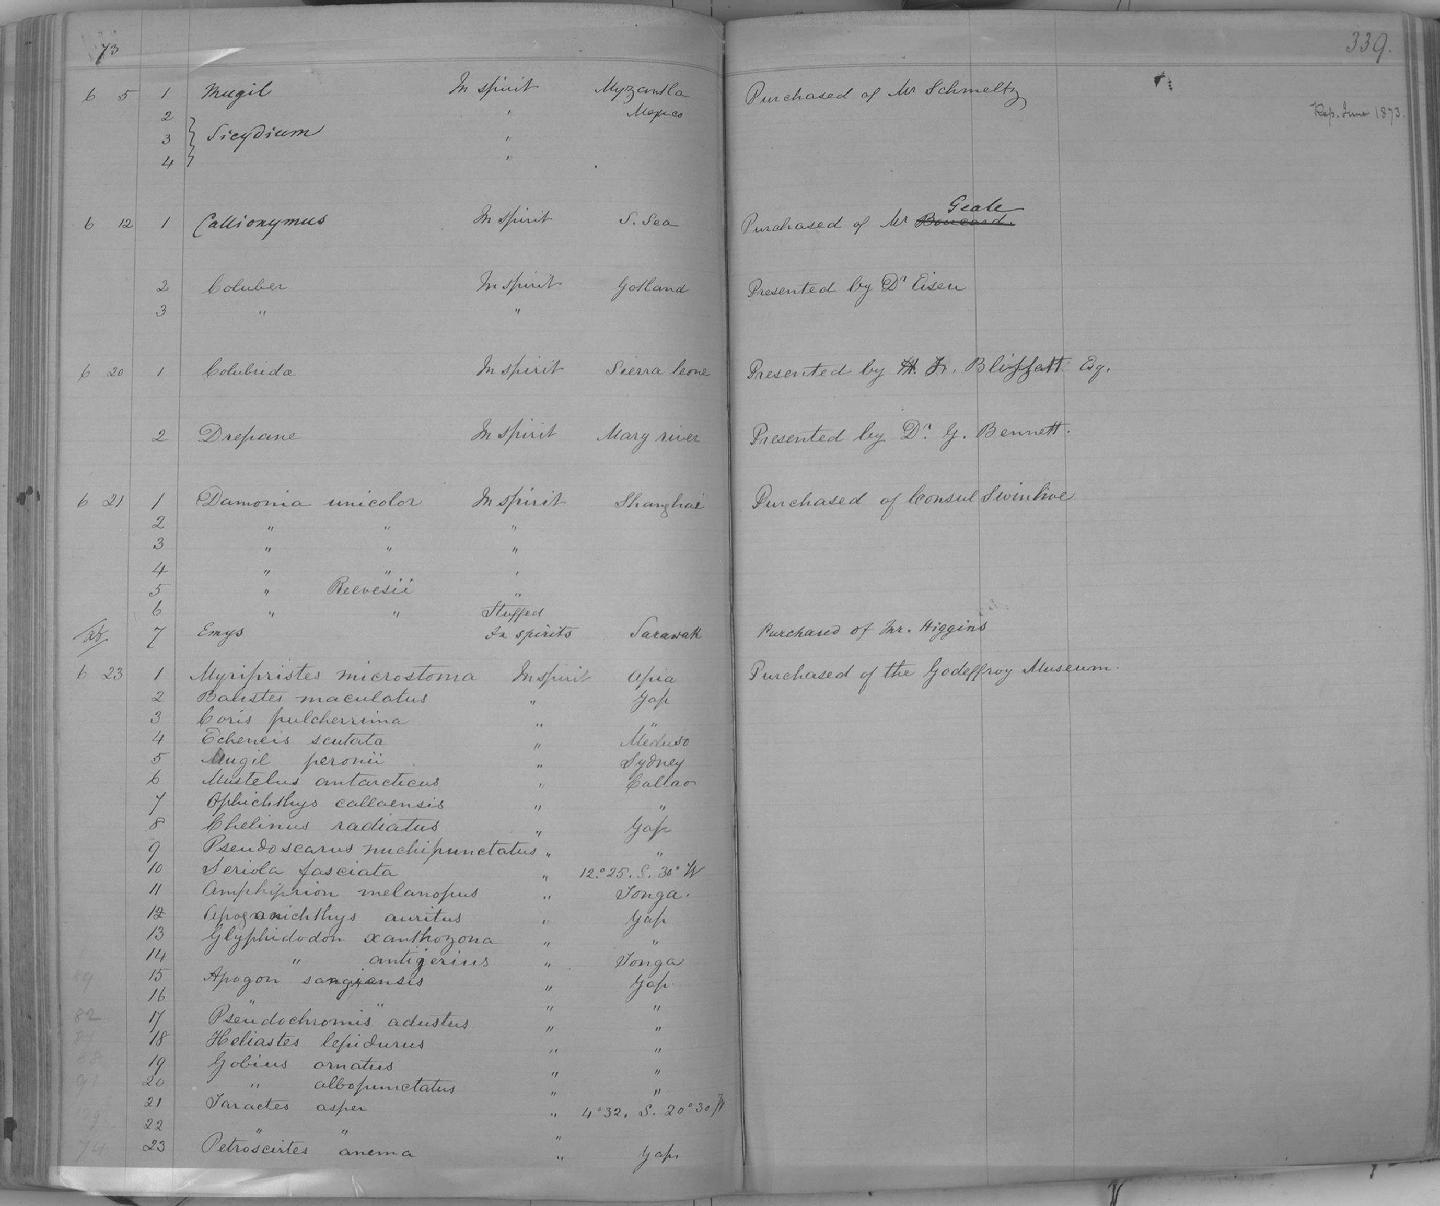 73
339.
6 5 1 Mugil In spirit Myzantla Purchased of Mr Schmeltz
2 " Mexico Rep. June 1873.
3 } Sicydium "
4 "
Geale
6 12 1 Callionymus In spirit S. Sea Purchased of Mr Boucard.
2 Coluber In spirit Gotland Presented by Dr Eisen
3 " "
6 20 1 Colubrida In spirit Sierra leone Presented by Fr. Bliffatt Esq.
2 Drepane In spirit Mary river Presented by Dr. G. Bennett.
6 21 1 Damonia unicolor In spirit Shanghai Purchased of Consul Swinhoe
2 " " "
3 " " "
4 " " "
5 " Reevesii "
6 " " Stuffed
7 Emys In spirits Sarawak Purchased of Mr. Higgins
6 23 1 Myripristes microstoma In spirit Apia Purchased of the Godeffroy Museum.
2 Balistes maculatus " Yap
3 Coris pulcherrima " "
4 Echeneis scutata " Meduso
5 Mugil peronii " Sydney
6 Mustelus antarcticus " Callao
7 Ophichthys callaensis " "
8 Chelinus radiatus " Yap
9 Pseudoscarus nuchipunctatus " "
10 Seriola fasciata " 12.°25. S. 30° W
11 Amphiprion melanopus " Tonga.
12 Apogonichthys auritus " Yap
13 Glyphidodon xanthozona " "
14 " antigerius " Tonga
15 Apogon sangiensis " Yap.
16 " " " "
17 Pseudochromis adustus " "
18 Heliastes lepidurus " "
19 Gobius ornatus " "
20 " albopunctatus " "
21 Taractes asper " 4°32. S. 20°30 W
22 " " "
23 Petroscirtes anema " Yap.